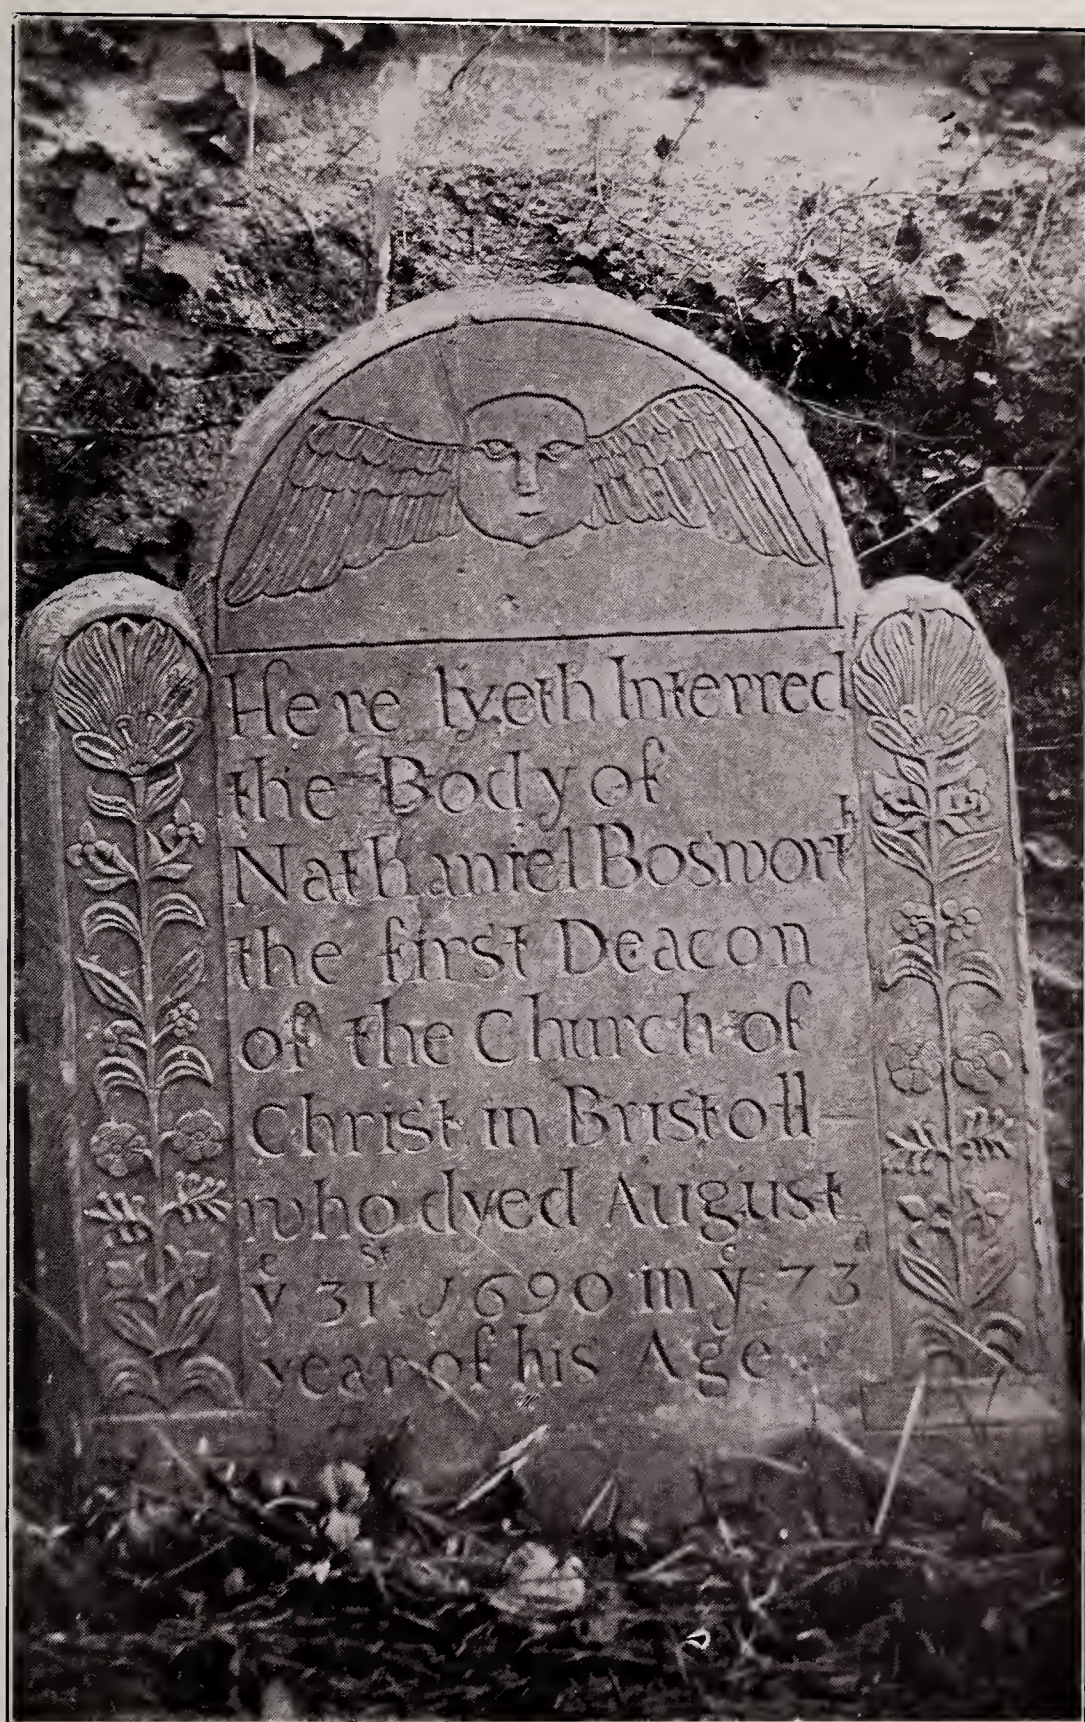 Here lyeth Interred
the Body of
Nathaniel Bosworth
the first Deacon
of the Church of
Christ in Bristoll
who dyed August
yᵉ 31ˢᵗ 1690 in yᵉ 73ᵈ
year of his Age